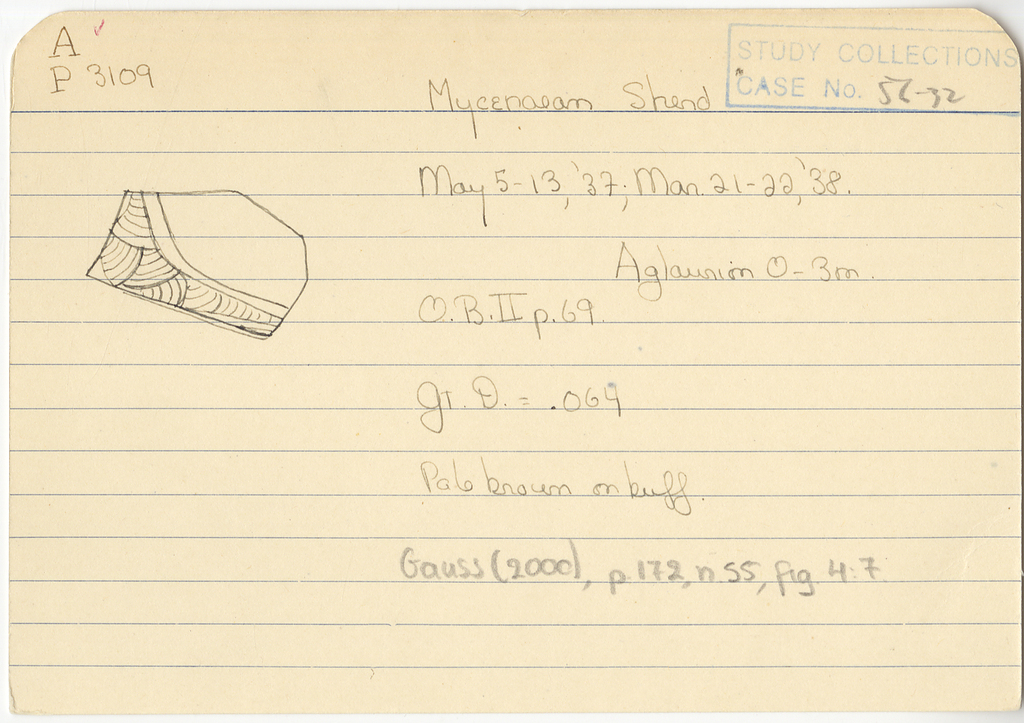 A
P 3109
STUDY COLLECTIONS
CASE No. 56-32
Mycenaean Sherd
May 5-13, '37; Mar. 21-22, '38.
Aglaurion 0-3m.
O.B.II p.69.
Gr. D. = .064
Pale brown on buff.
Gauss (2000), p. 172, n 55, fig. 4:7